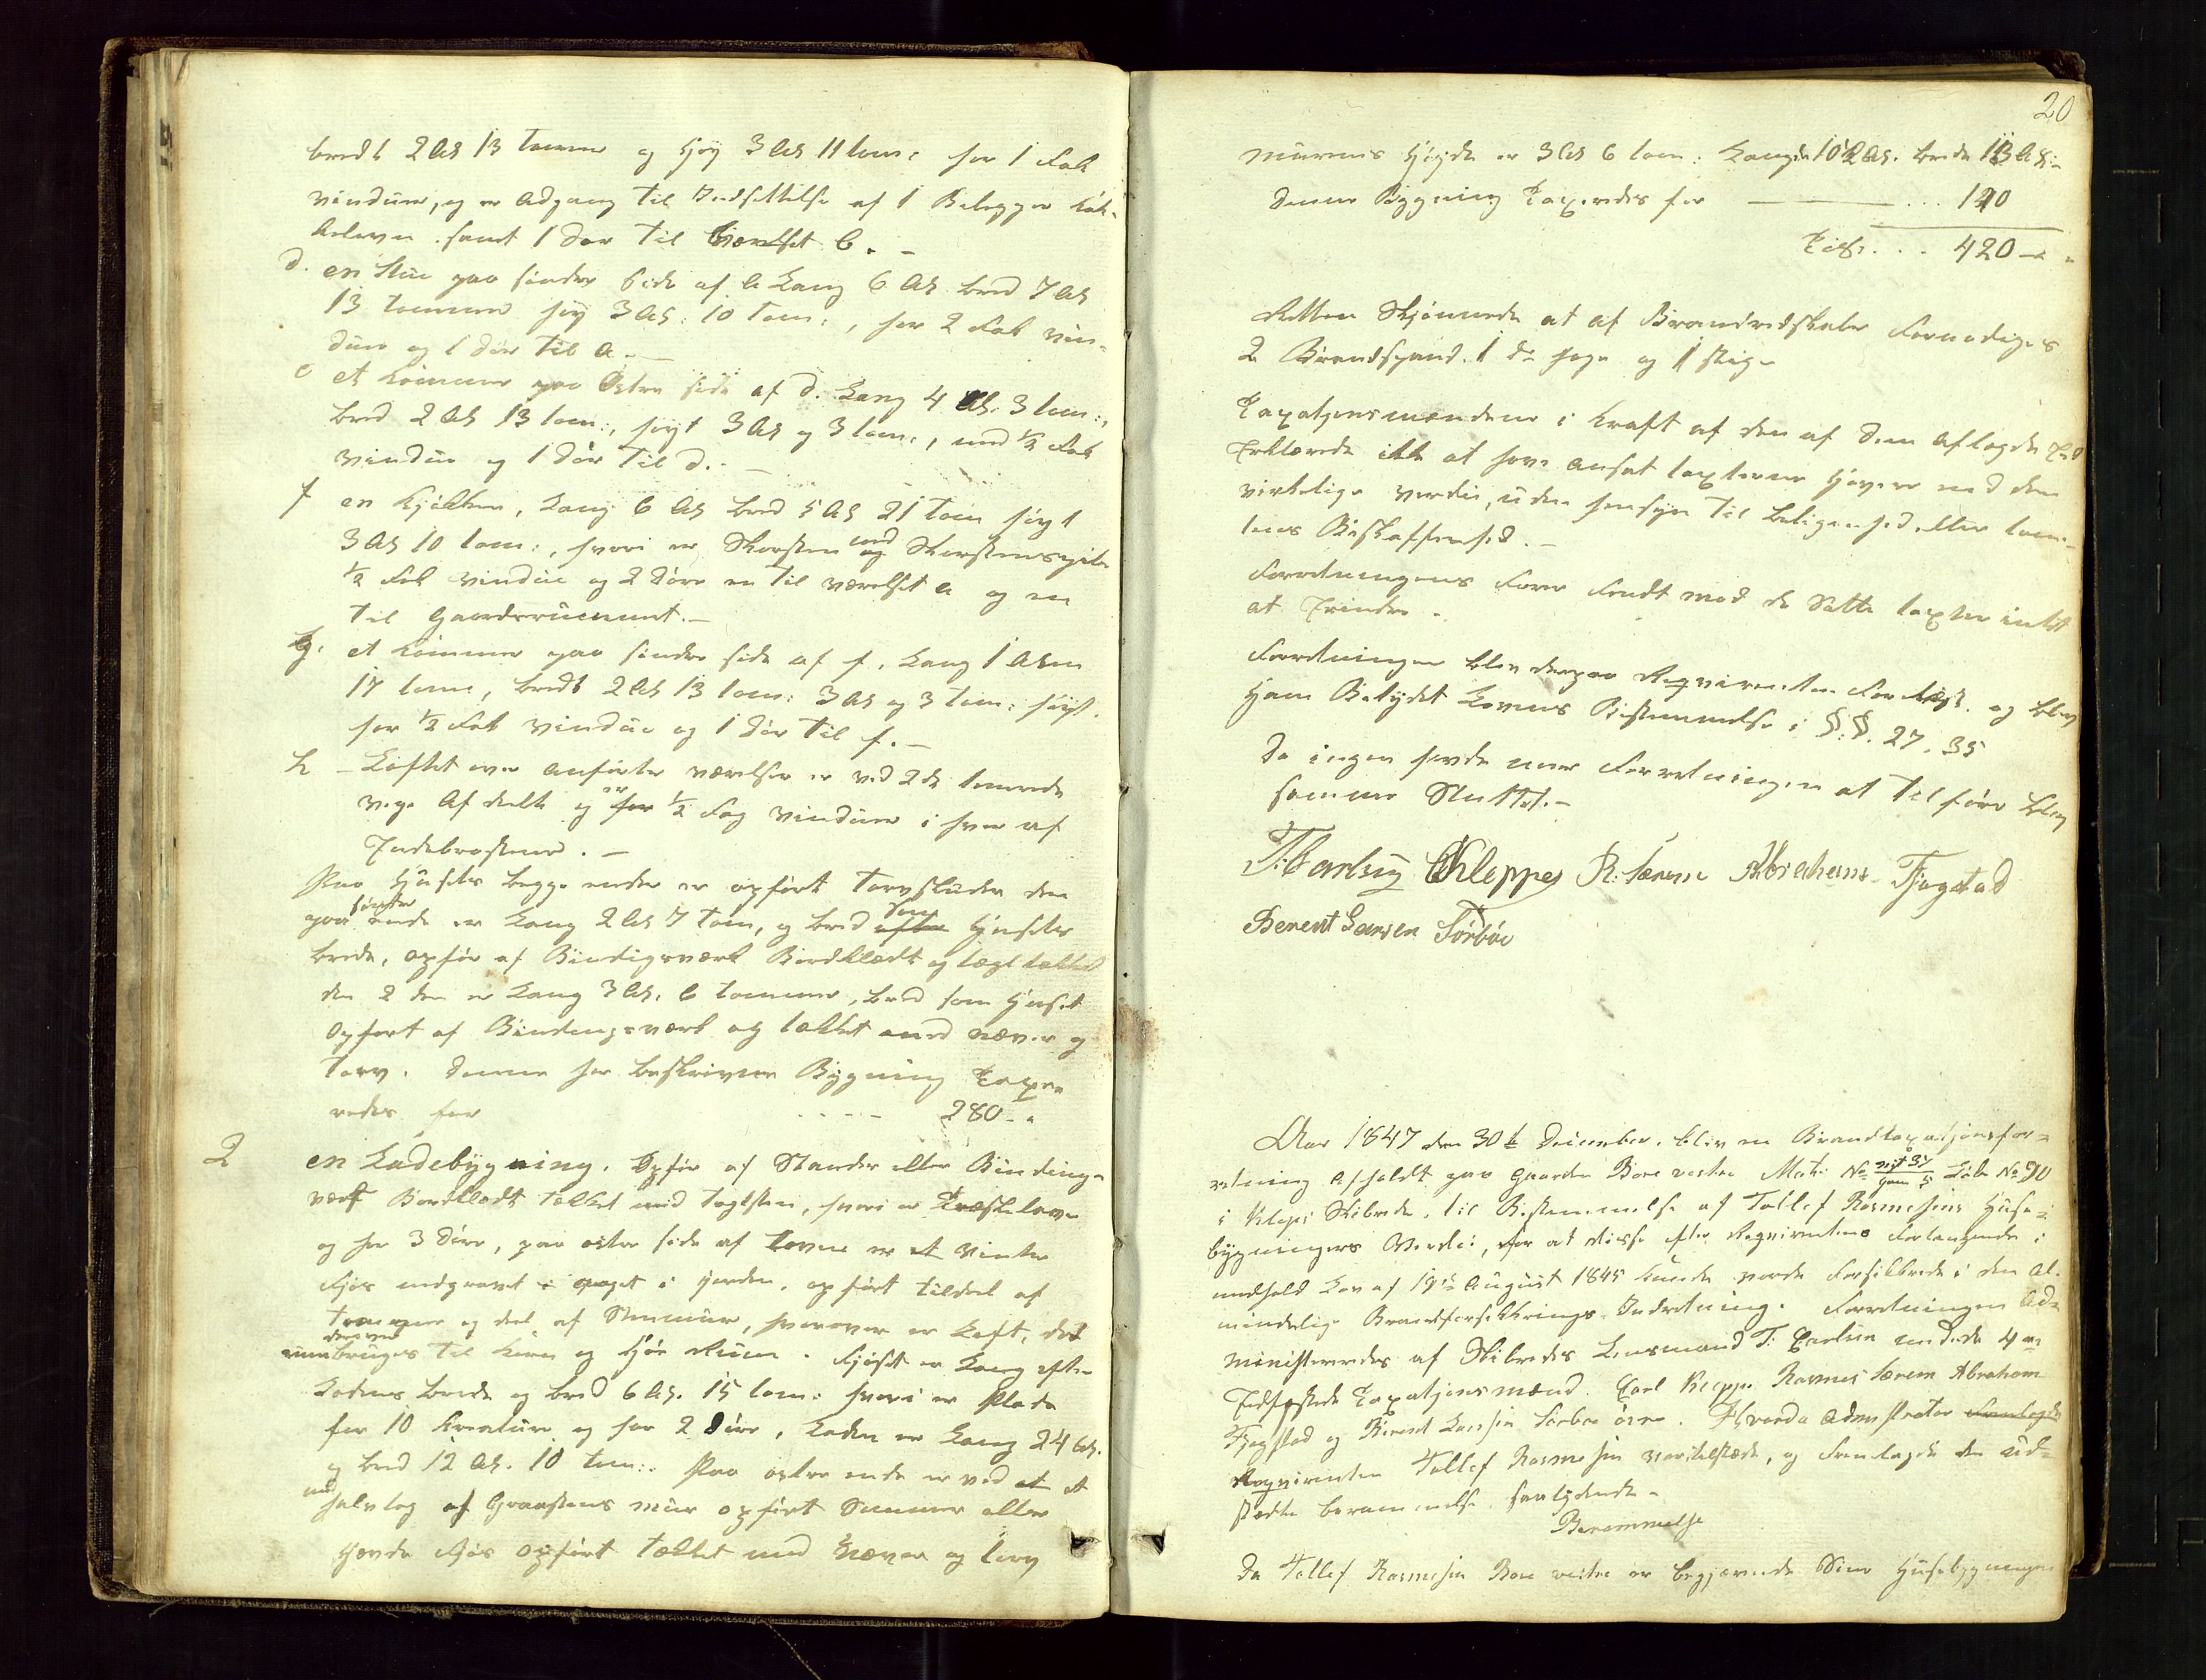 bredt 2 Al 13 Tommer og Høy 3 Al 11 Tom: har 1 Fak
vinduer, og er Adgang til Indsettelse af 1 Belegger Kak-
kelovn samt 1 Dør til Værelset b. -
d. en Stue paa søndre Side af a Lang 6 Al bred 7 Al
13 tommer høy 3 Al: 10 Tom:, har 2 Fak vin-
duer og 1 dør til a. -
e et Kammer paa Østre side af d. Lang 4 Al. 3 tom:,
bred 2 Al 13 tom:, høyt 3 Al og 3 tom:, med ½ Fak
vindue og 1 Dør til d. -
f en Kjøkken, Lang 6 Al bred 5 Al 21 tom høyt
3 Al 10 tom:, hvori er Skorsten med og Skorstenspibe
½ Fak vindue og 2 Døre en til værelset a og en
til Gaardsrummet. -
g. et Kammer paa søndre side af f, Lang 1 Alen
17 tom:, bredt 2 Al 13 tom: 3 Al og 3 tom: høyt.
har ½ Fak vindue og 1 Dør til f. -
h - Loftet over anførte værelser er ved 2de tømrede
vege Afdeelt og er har ½ Fag vinduer i hver af
Endebrøstene. -
Paa Husets begge ender er opført Torvskuder den
paa søndre ende er Lang 2 Al 7 Tom, og bred efter som Husets
brede, opfør af Bindigsværk Bordklædt og tægl takket
den 2den er Lang 3 Al. 6 tommer, bred som Huset
Opført af Bindingsværk og takket med næver og
Torv. Denne her beskrivne Bygning Taxe-
redes for - - - - 280 - "
2 en Ladebygning. Opfør af Stander eller Bindings-
værk Bordklædt takket med Taglsten, hvori er Træskelove
og har 3 Døre, paa østre side af Loven er et vinter
Fjøs nedgravet i jorden, opført tildeel af
tømmer og deel af Steenmur, hvorover er Loft, det
rum derover bruges til Korn og Høe Ruum. Fjøset er Lang efter
Ladens brede og bred 6 Al. 15 tom: hvori er Plads
for 10 Kreature og har 2 Døre, Laden er Lang 24 Al.
og bred 12 Al. 10 tom:. Paa østre ende er ved et
med halvtag af Graastens mur opført Sommer eller
Høve Fjøs opført takket med Næver og torv
20
Murens Høyde er 3 Al 6 tom: Længde 10½ Al. brede 13 Al:-
denne Bygning Taxeredes for - - - ... 140
Tilsk: . . . 420 - "
Retten Skjønnede at af Brandredskaber Fornødiges
2 Brandspand. 1 do hage og 1 stige
Taxatjonsmændene i kraft af den af dem aflagde Eed
Erklærede ikke at have ansat taxterne Høyere end den
virkelige verdie, uden hensyn til beligenhed eller tom-
tens Beskaffenhed. -
Forretningens Fører Fandt mod de Satte taxter intet
at Erindre -
Forretningen blev derpaa Reqvirenten Forelæst. og blev
Ham Betydet Lovens Bestemmelse i §.§. 27. 35
Da ingen havde mere Forretningen at tilføre blev
samme Sluttet. -
T. Carlsen CKleppe R: Særem Abraham Tjøgstad
Berent Larsen Sørbøe
Aar 1847 den 30te December, blev en Brandtaxatjonsfor-
retning Afholdt paa Gaarden Bore vestre Matr: No nyt 37 gam 5 Løbe No 90
i Kleps Skibrede, til Bestemmelse af Tollef Rasmesens Huse-
bygningers Verdie, for at disse efter Reqvirentens Forlangende i
medhold Lov af 19de August 1845 kunde vorde Forsikkrede i den Al-
mindelige Brandforsikkrings-Indretning. Forretningen Ad-
ministreredes af Skibredes Lensmand T: Carlsen med de 4re
Edsfæstede Taxatjonsmænd. Carl Kleppe Rasmus Særem Abraham
Tjøgstad og Berent Larsen Sørbøe øvre. Hvorda Admstrator Fremlagde
Reqvirenten Tollef Rasmesen var tilstede, og Fremlagde den ud-
stedte berammelse saalydende -
Berammelse
Da Tollef Rasmesen Bore vestre er begjærende Sine Husebygninger